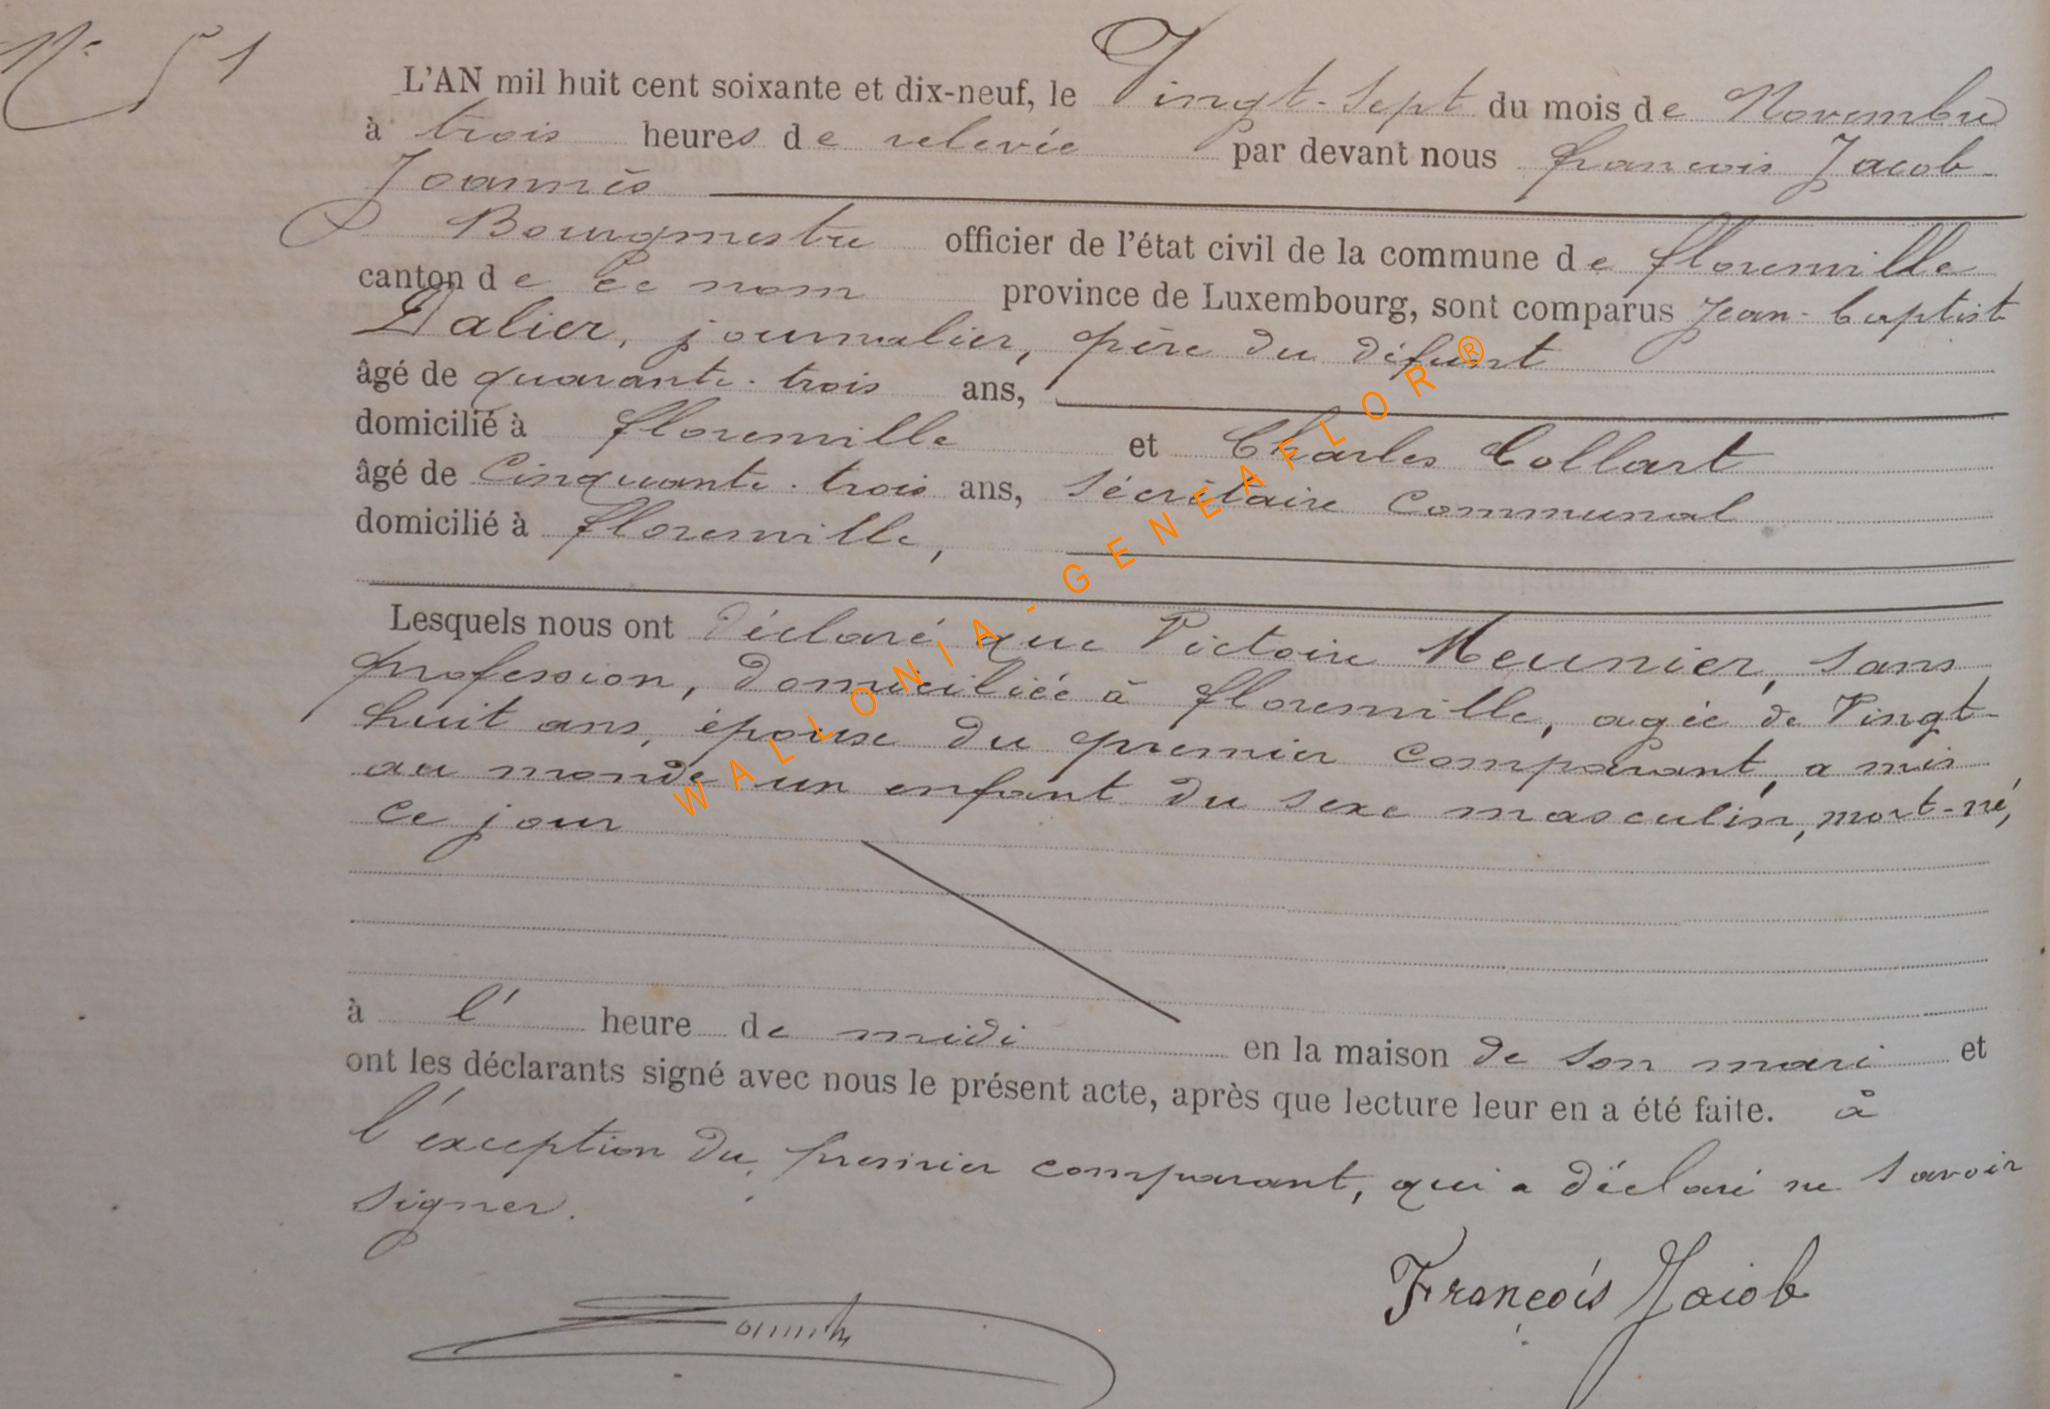 N° 51
L'AN mil huit cent soixante et dix-neuf, le Vingt-sept du mois de Novembre
à trois heures de relevée par devant nous françois Jacob
Joannès
Bourgmestre officier de l'état civil de la commune de florenville
canton de ce nom province de Luxembourg, sont comparus Jean-baptist
Dalier, journalier, père du défunt
âgé de quarante-trois ans,
domicilié à florenville et Charles Collart
âgé de Cinquante-trois ans, sécrétaire Communal
domicilié à florenville,
Lesquels nous ont déclaré que Victoire Meunier, sans
profession, domiciliée à florenville, agée de Vingt-
huit ans, épouse du premier comparant, a mis
au monde un enfant du sexe masculin, mort-né,
ce jour
à l' heure de midi en la maison de son mari et
ont les déclarants signé avec nous le présent acte, après que lecture leur en a été faite. à
l'éxception du premier comparant, qui a déclaré ne savoir
signer.
François Jacob
WALLONIA-GENEAFLOR®